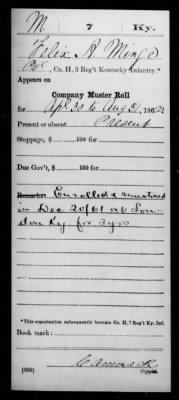 M 7 Ky.
Felix A Mingo
Pvt, Co. H, 3 Reg't Kentucky Infantry.*
Appears on
Company Muster Roll
for Apl 30 to Aug 31, 1862
Present or absent Present
Stoppage, $ 100 for
Due Gov't, $ 100 for
Remarks: Enrolled & mustered
in Dec 20/61 at Lon
don Ky for 3 yrs
*This organization subsequently became Co. H, 7 Reg't Ky. Inf.
Book mark:
Cammack
(358) Copyist.